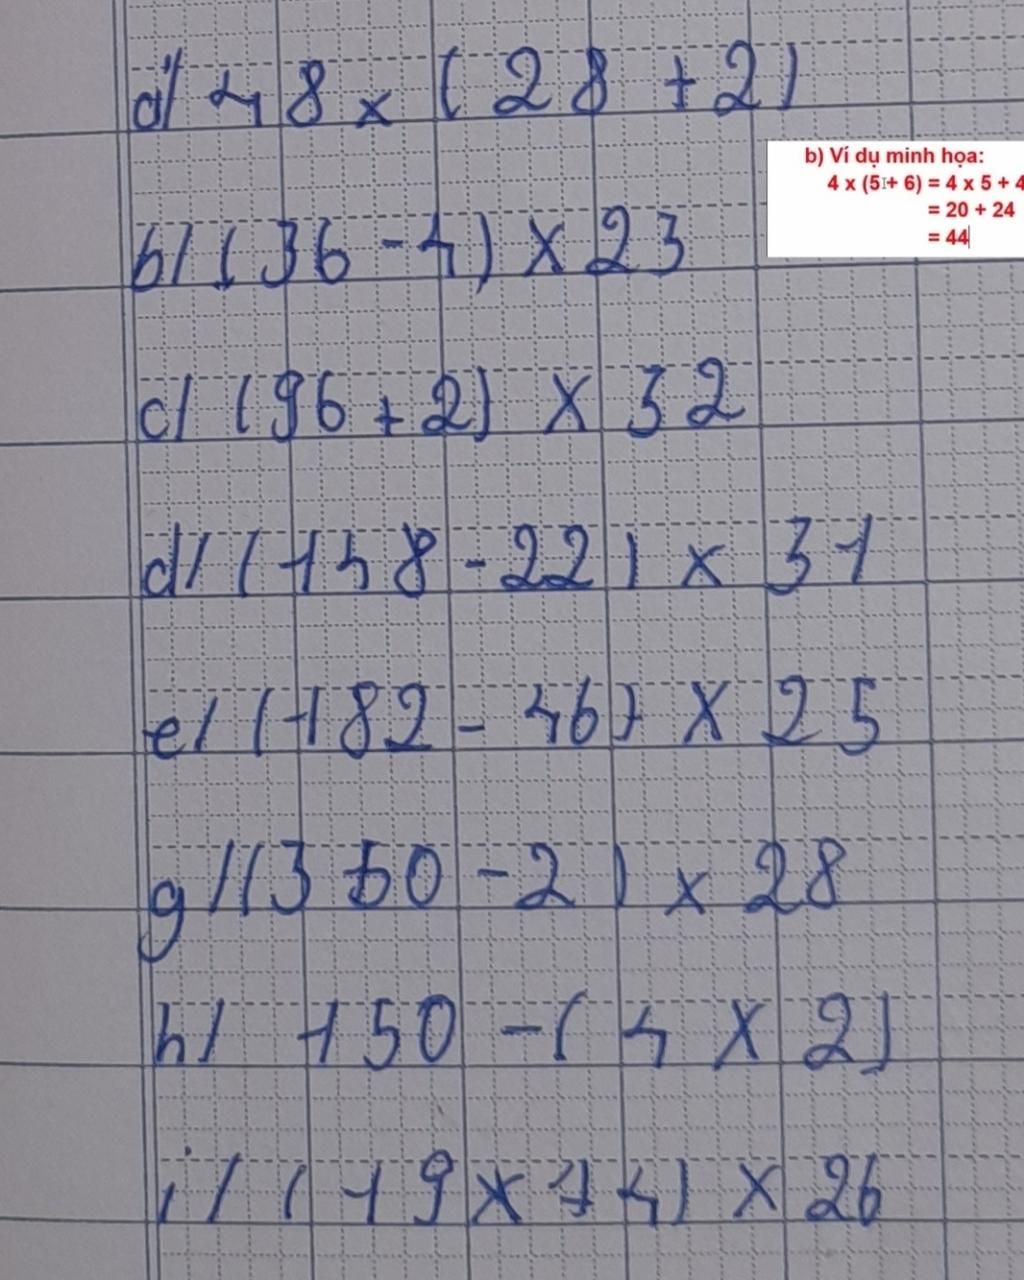 a/ 48 x (28 + 2)
b) Ví dụ minh họa:
4 x (5 + 6) = 4 x 5 + 4
= 20 + 24
= 44
b/ (36 - 4) x 23
c/ (96 + 2) x 32
d/ (148 - 22) x 31
e/ (182 - 46) x 25
g/ (350 - 2) x 28
h/ 150 - (4 x 2)
i/ (19 x 14) x 26